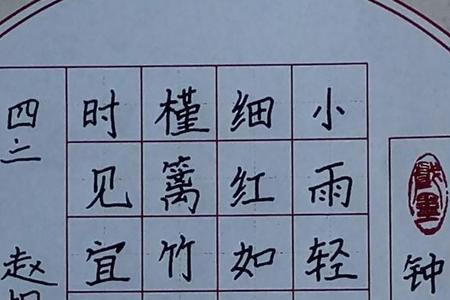 钟
小雨轻
细红如
槿篱竹
时见宜
四
赵